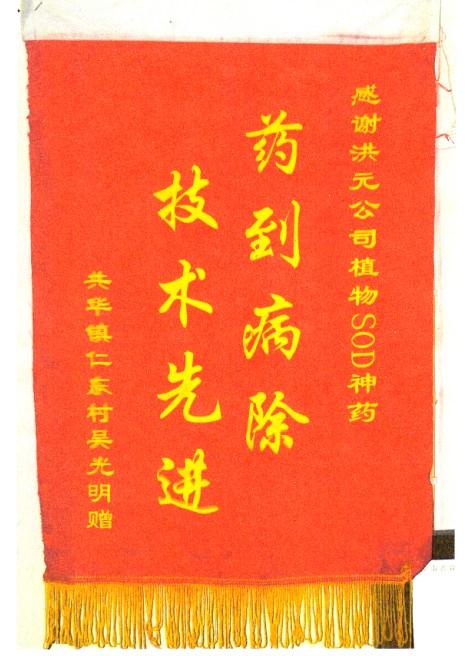 感谢洪元公司植物SOD神药
药到病除
技术先进
共华镇仁东村吴光明赠